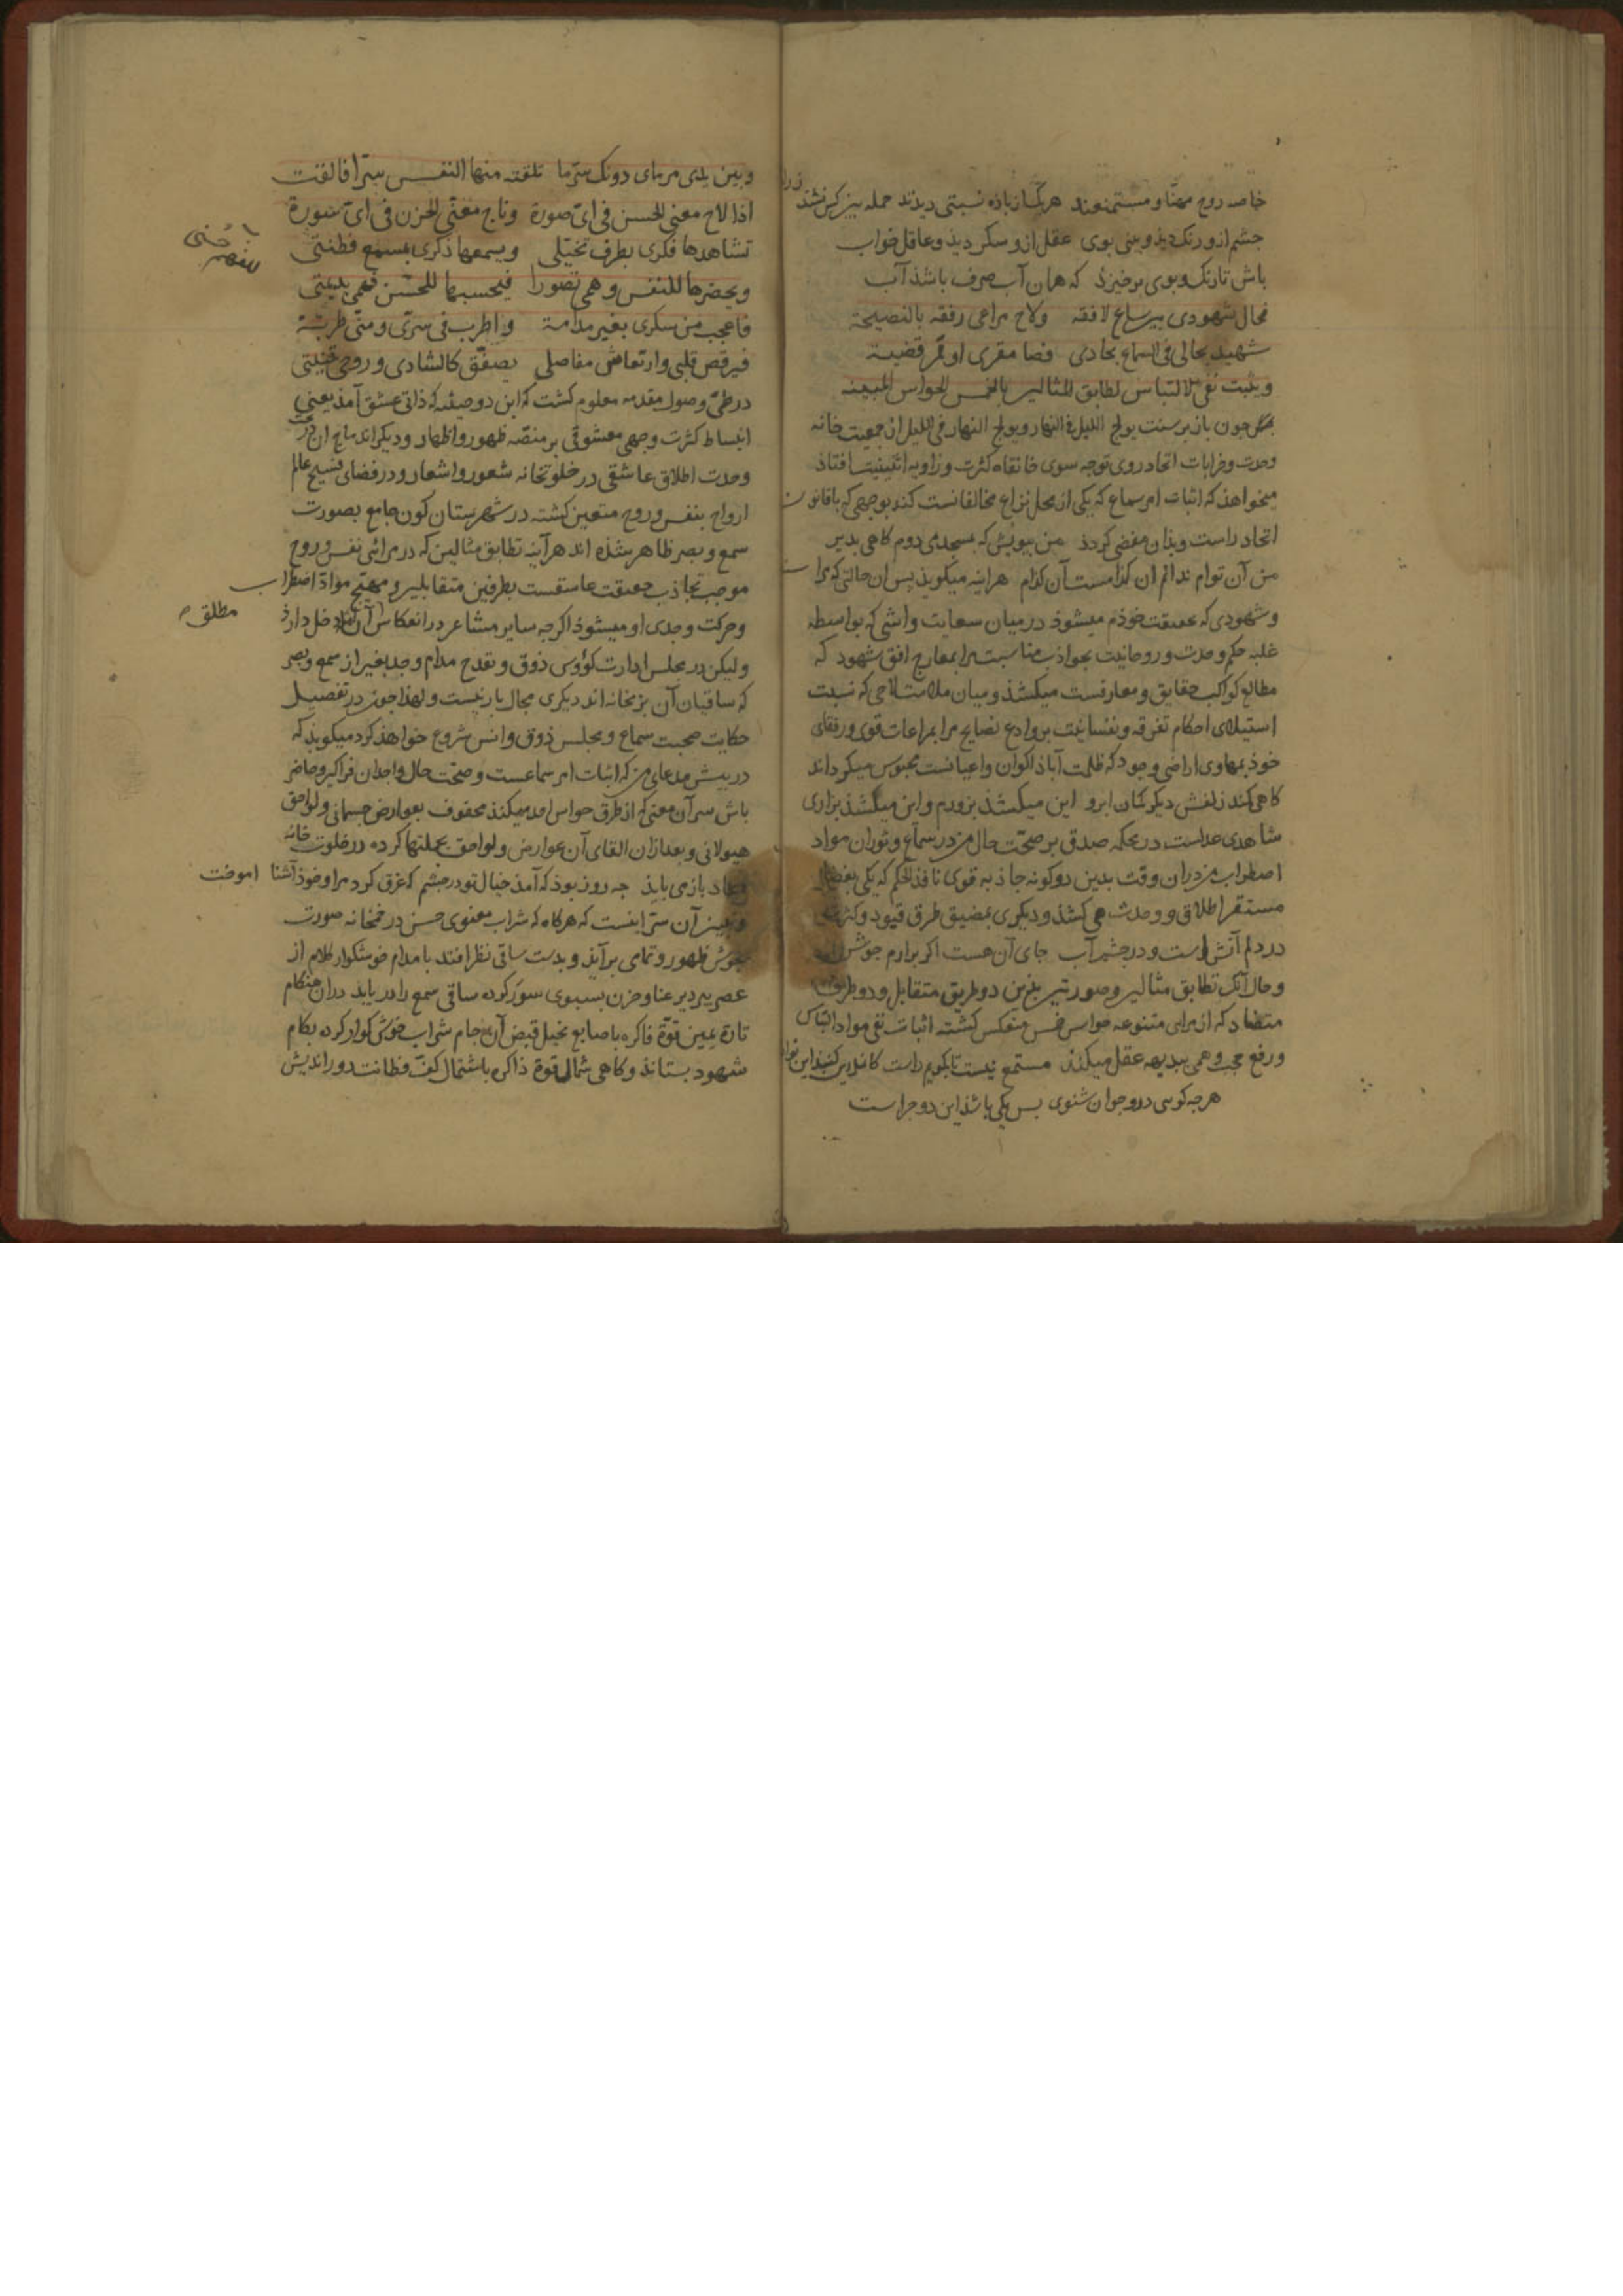 خاصه روح مهنا و مستمتعند هر یک از باده نسبتی دیدند جمله بیز کس نشد
چشم ازو رنک دید و بینی بوی عقل ازو سکر دید و عاقل خواب
باش تا رنک و بوی برخیزد که همان آب صرف باشد آب
فحال شهودی بین ساع لافقه ولاح مراعی رفقه بالنصیحة
شهید بحالی فی السماع بحادی قضا مقری او ممر قضیة
ویثبت نفی الالتباس تطابق المثالین بالخمس الحواس المبینه
چون باز بر سنت یولج اللیل فی النهار ویولج النهار فی اللیل از جمعیت خانه
وحدت و خرابات اتحاد روی توجه سوی خانقاه کثرت و زاویه اثنینیت افتاد
میخواهد که اثبات امر سماع که یکی از محل نزاع مخالفانست کند بوجهی که با قانون
اتحاد راست و بدان مفضی کردد من بیوبش که بسجده دوم کاهی بدیر
من آن توام ندانم ان کدامست آن کدام هراینه میکوید پس ان حالتی که مرا
و شهودی که حقیقت خودم میشود در میان سعایت واشی که بواسطه
غلبه حکم وحدت و روحانیت بجواذب مناسبت مرا بمعارج افق شهود که
مطالع کواکب حقایق و معارفست میکشد و میان ملامت لاحی که نسبت
استیلای احکام تفرقه و نفسانیت بروادع نصایح مرا بمراعات قوی و رفقای
خود بمهاوی اراضی وجود که ظلمت آباد اکوان و اعیانست محبوس میکرداند
کاهی کند زلفش دیکر کمان ابرو این میکشد بزورم و این میکشد بزاری
شاهدی عدلست در محکمه صدق بر صحت حال من در سماع و ثوران مواد
اضطراب من دران وقت بدین دو کونه جاذبه قوی نافذ الحکم که یکی بفضای
مستقر اطلاق و وحدت می کشد و دیکری بمضیق طرق قیود و کثرت
در دلم آتش است و در چشم آب جای آن هست اکر برارم جوش
و حال آنک تطابق مثالین و صورتین بین دو طریق متقابل و دو طرف
متضاد که از مرای متنوعه حواس خمس منعکس کشته اثبات نفی مواد التباس
و رفع حجب وهمی ببدیهه عقل میکند مستمع نیست تا بکویم راست کاندرین کنبد این نوا
هرچه کویی درو جوان شنوی پس یکی باشد این دو چراست
وبین یدی مرمای دونک سرما تلقته منها النفس سرا فالقت
اذا لاح معنی الحسن فی ای صورة وناح معنی الحزن فی ای سورة
تشاهدها فکری بطرف تخیلی ویسمعها ذکری بمسمع فطنتی
ویحضرها للنفس وهمی تصورا فیحسبها للحس فهمی بدیهتی
فاعجب من سکری بغیر مدامة واطرب فی سری ومنی طربتی
فیرقص قلبی وارتعاش مفاصلی یصفق کالشادی وروحی قینتی
در طی وصول مقدمه معلوم کشت که این دو صفت که ذاتی عشق آمد یعنی
انبساط کثرت وجهی معشوقی بر منصه ظهور و اظهار و دیکر اندماج ان در
وحدت اطلاق عاشقی در خلوتخانه شعور و اشعار و در فضای فسیح عالم
ارواح بنفس و روح متعین کشته در شهرستان کون جامع بصورت
سمع و بصر ظاهر شده اند هرآینه تطابق مثالین که در مرائی نفس و روح
موجب تجاذب حقیقت عاشقست بطرفین متقابلین و مهیج مواد اضطراب
و حرکت وجدی او میشود اکرچه سایر مشاعر در انعکاس آن دخل دارد
مطلق
ولیکن در مجلس ادارت کؤوس ذوق و تقدح مدام وجد بغیر از سمع و بصر
که ساقیان آن بزمخانه اند دیکری مجال بار نیست و لهذا چون در تفصیل
حکایت صحبت سماع و مجلس ذوق و انس شروع خواهد کرد میکوید که
در پیش مدعای من که اثبات امر سماعست و صحت حال واجدان فراکیر و حاضر
باش سر آن معنی که از طرق حواس امد میکند محفوف بعوارض جسمانی و لواحق
هیولانی و بعد ازان القای آن عوارض و لواحق بجملتها کرده در خلوت خانه
بازمی یابد چه روز بود که آمد خیال تو در چشم که غرق کرد مرا و خود آشنا اموخت
و تبیین آن سر اینست که هرکاه که شراب معنوی حسن در خمخانه صورت
بجوش ظهور و تمامی برآید و بدست ساقی نظر افتد یا مدام خوشکوار کلام از
عصیر پیر دیر عنا و حزن بسبوی سور کرده ساقی سمع را دریابد دران هنکام
تارة یمین قوة فاکره باصابع تخیل قبض آن جام شراب خوش کوار کرده بکام
شهود بستاند و کاهی شمال قوة ذاکره باشتمال کف فطانت دور اندیش